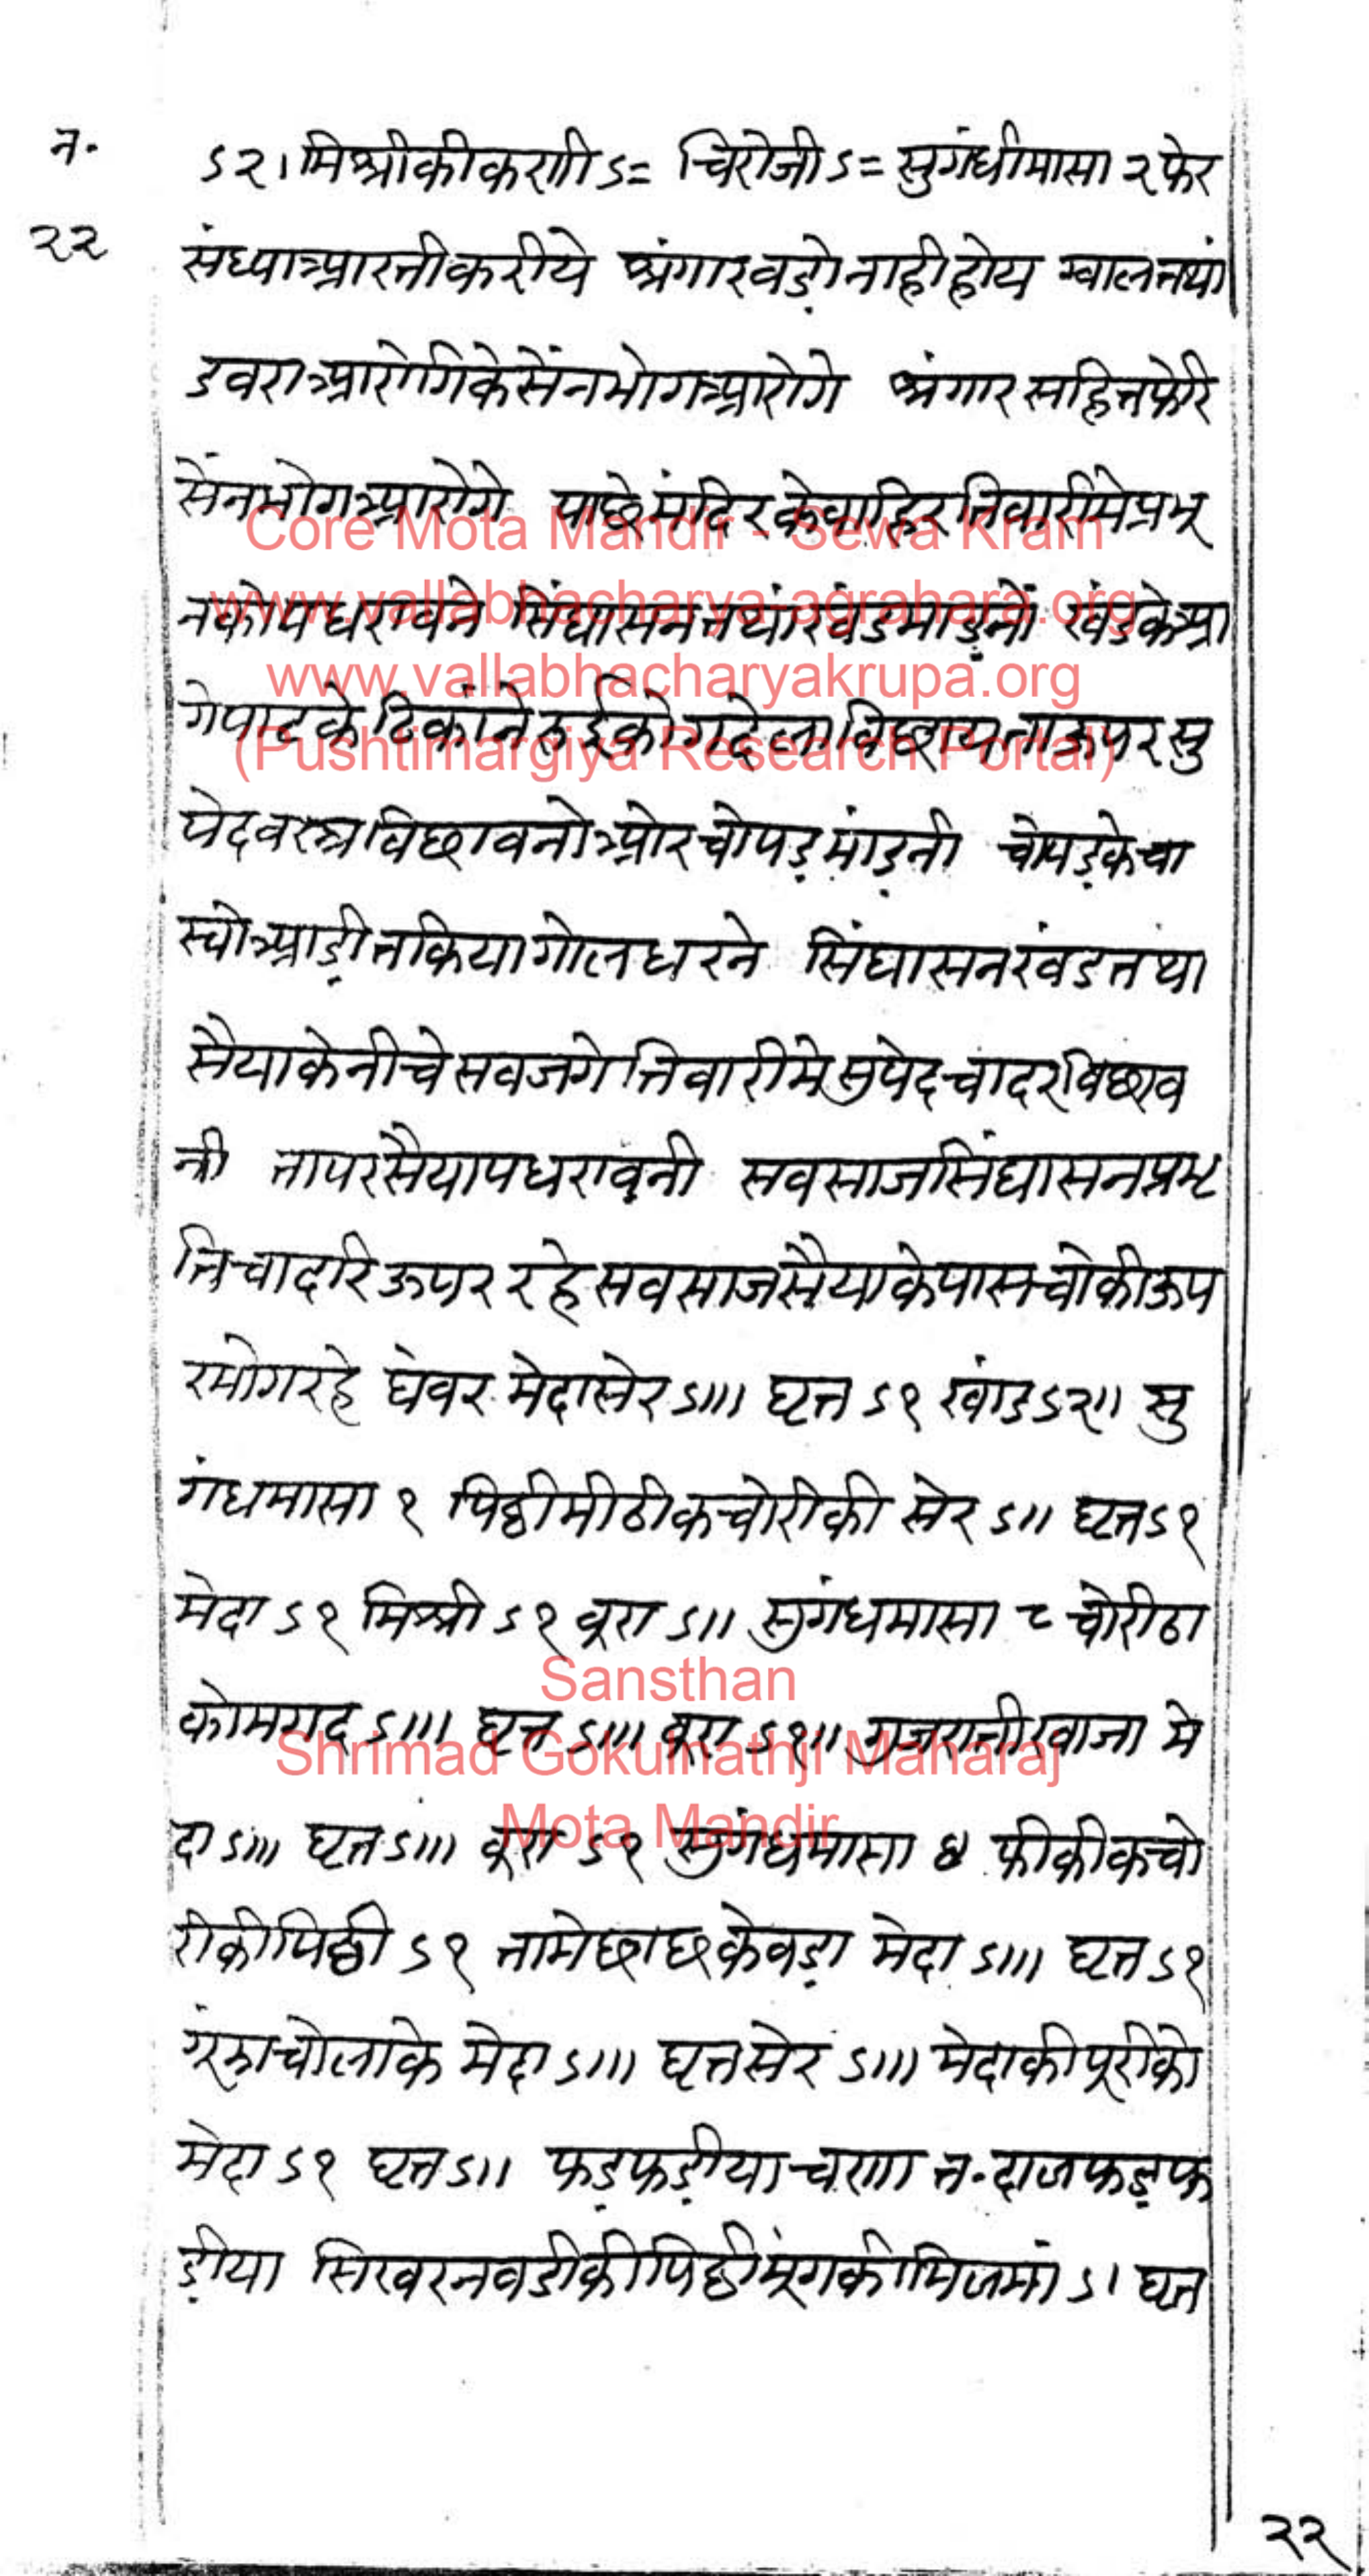 न.
२२
ऽ२। मिश्रीकीकणी ऽ= चिरोजी ऽ= सुगंधीमासा २ फेर
संध्याआरतीकरीये श्रृंगारवड़ोनाहीहोय ग्वालतथां
डवराआरोगिकेसेंनभोगआरोगे श्रृंगारसहितफेरि
सेंनभोगआरोगे पाछेमंदिरकेवाहिरतिवारीमेप्रभू
नकोपधरावने सिंघासनतथांखंडमाड़नों खंडकेआ
गेपाटकेठिकांनेरुईकोगदेलाविछायताऊपरसु
पेदवस्त्रविछावनोओरचोपड़मांड़नी चोपड़केचा
स्योआड़ीतकियागोलधरने सिंघासनखंडतथा
सैयाकेनीचेसवजगेतिवारीमेसुपेदचादरविछाव
नी तापरसैयापधरावनी सवसाजसिंघासनप्रभृ
तिचादरिऊपररहेसवसाजसैयाकेपासचोकीऊप
रभोगरहे घेवरमेदासेर ऽ॥। घृत ऽ१ खांड ऽ२॥ सु
गंधमासा १ पिठ्ठीमीठीकचोरीकी सेर ऽ॥ घृत ऽ१
मेदा ऽ१ मिश्री ऽ१ वूरा ऽ॥ सुगंधमासा ८ चोरीठा
कोमगद ऽ॥। घृत ऽ॥। वूरा ऽ१॥ गुजरातीखाजा मे
दा ऽ॥। घृत ऽ॥। वूरा ऽ१ सुगंधमासा ४ फीकीकचो
रीकीपिठ्ठी ऽ१ तामेछाछकेवड़ा मेदा ऽ॥। घृत ऽ१
गूंझाचोलाके मेदा ऽ॥। घृतसेर ऽ॥। मेदाकीपूरीको
मेदा ऽ१ घृत ऽ॥ फड़फड़ीयाचणा त.दालफड़फ
ड़ीया सिखरनवडीकीपिठ्ठीमूंगकीमिजमां ऽ। घृत
२२
Core Mota Mandir - Sewa Kram
www.vallabhacharya-agrahara.org
www.vallabhacharyakrupa.org
(Pushtimargiya Research Portal)
Sansthan
Shrimad Gokulnathji Maharaj
Mota Mandir